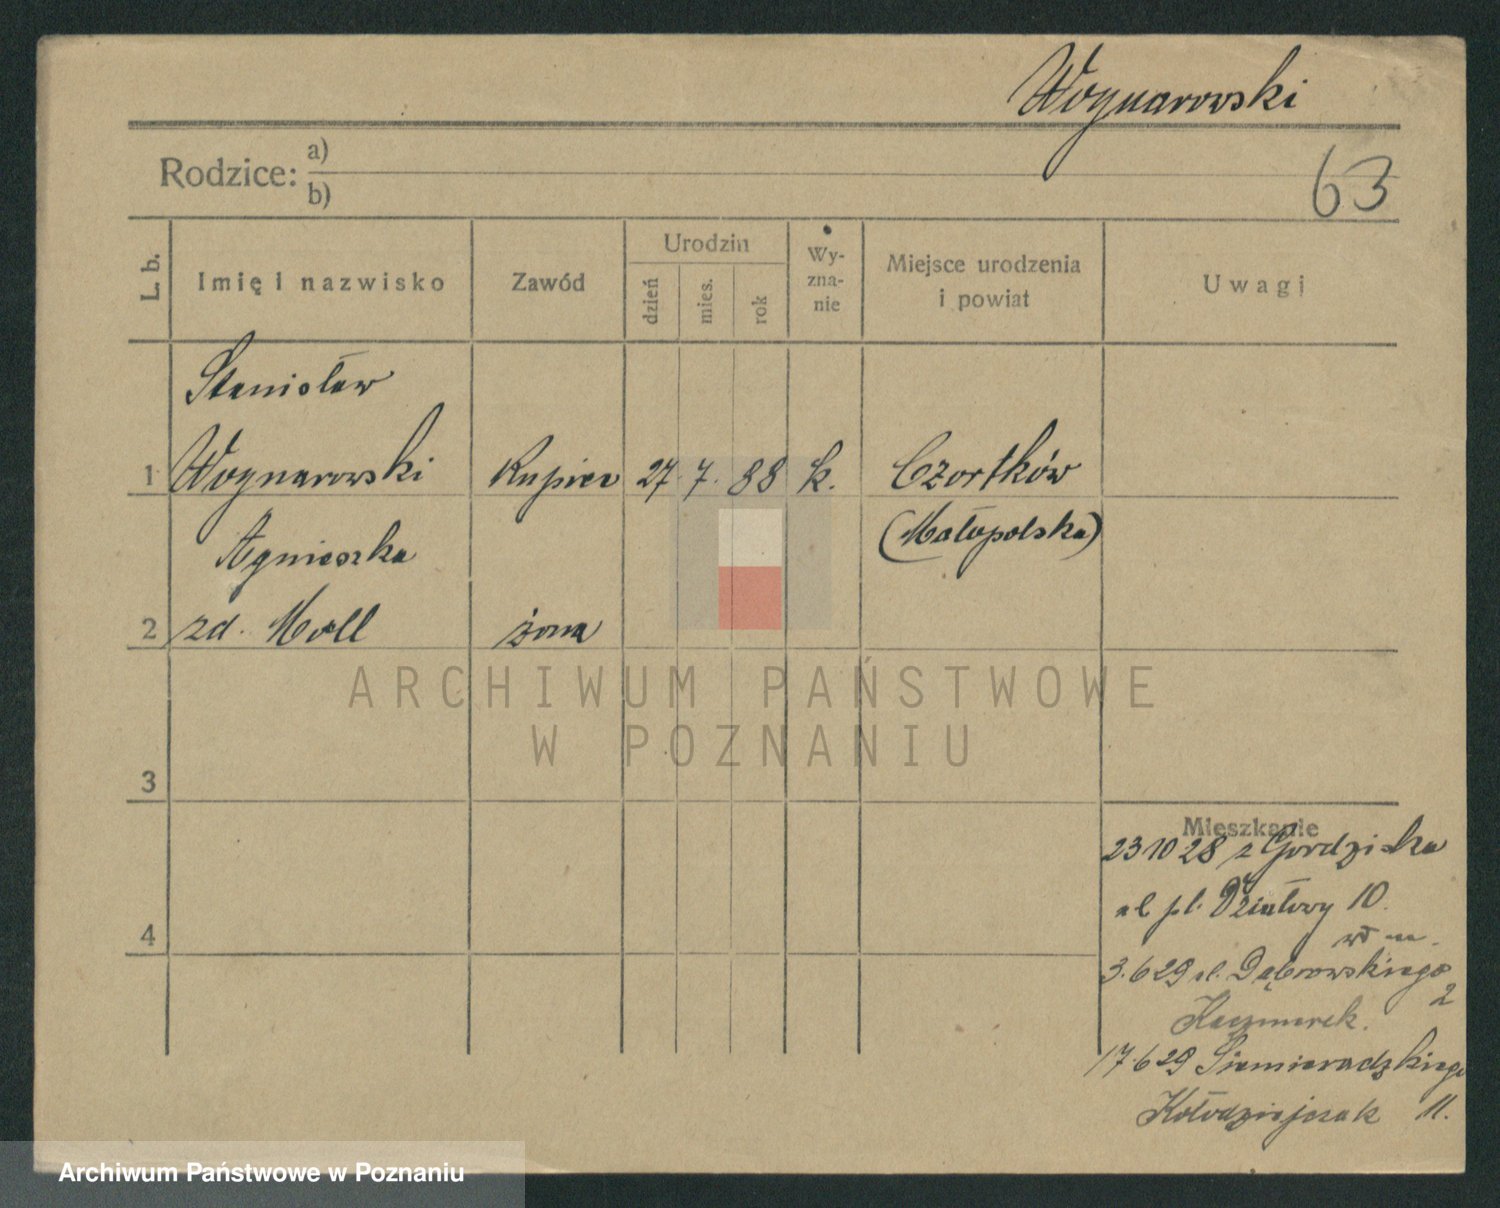 Woynarowski
Rodzice: a)
b)
63
L. b.
Imię i nazwisko
Zawód
Urodzin
dzień
mies.
rok
Wy-
zna-
nie
Miejsce urodzenia
i powiat
Uwagi
Stanisław
1 Woynarowski Kupiec 27 7. 88 k. Czortków
(Małopolska)
Agnieszka
2 zd. Moll żona
3
4
Mieszkanie
23 10 28 z Grodziska
pl. Działowy 10.
3.6 29 ul. Dąbrowskiego
2
Kaczmarek.
17.6 29 Siemieradzkiego
Kołodziejczak 11.
ARCHIWUM PAŃSTWOWE
W POZNANIU
Archiwum Państwowe w Poznaniu